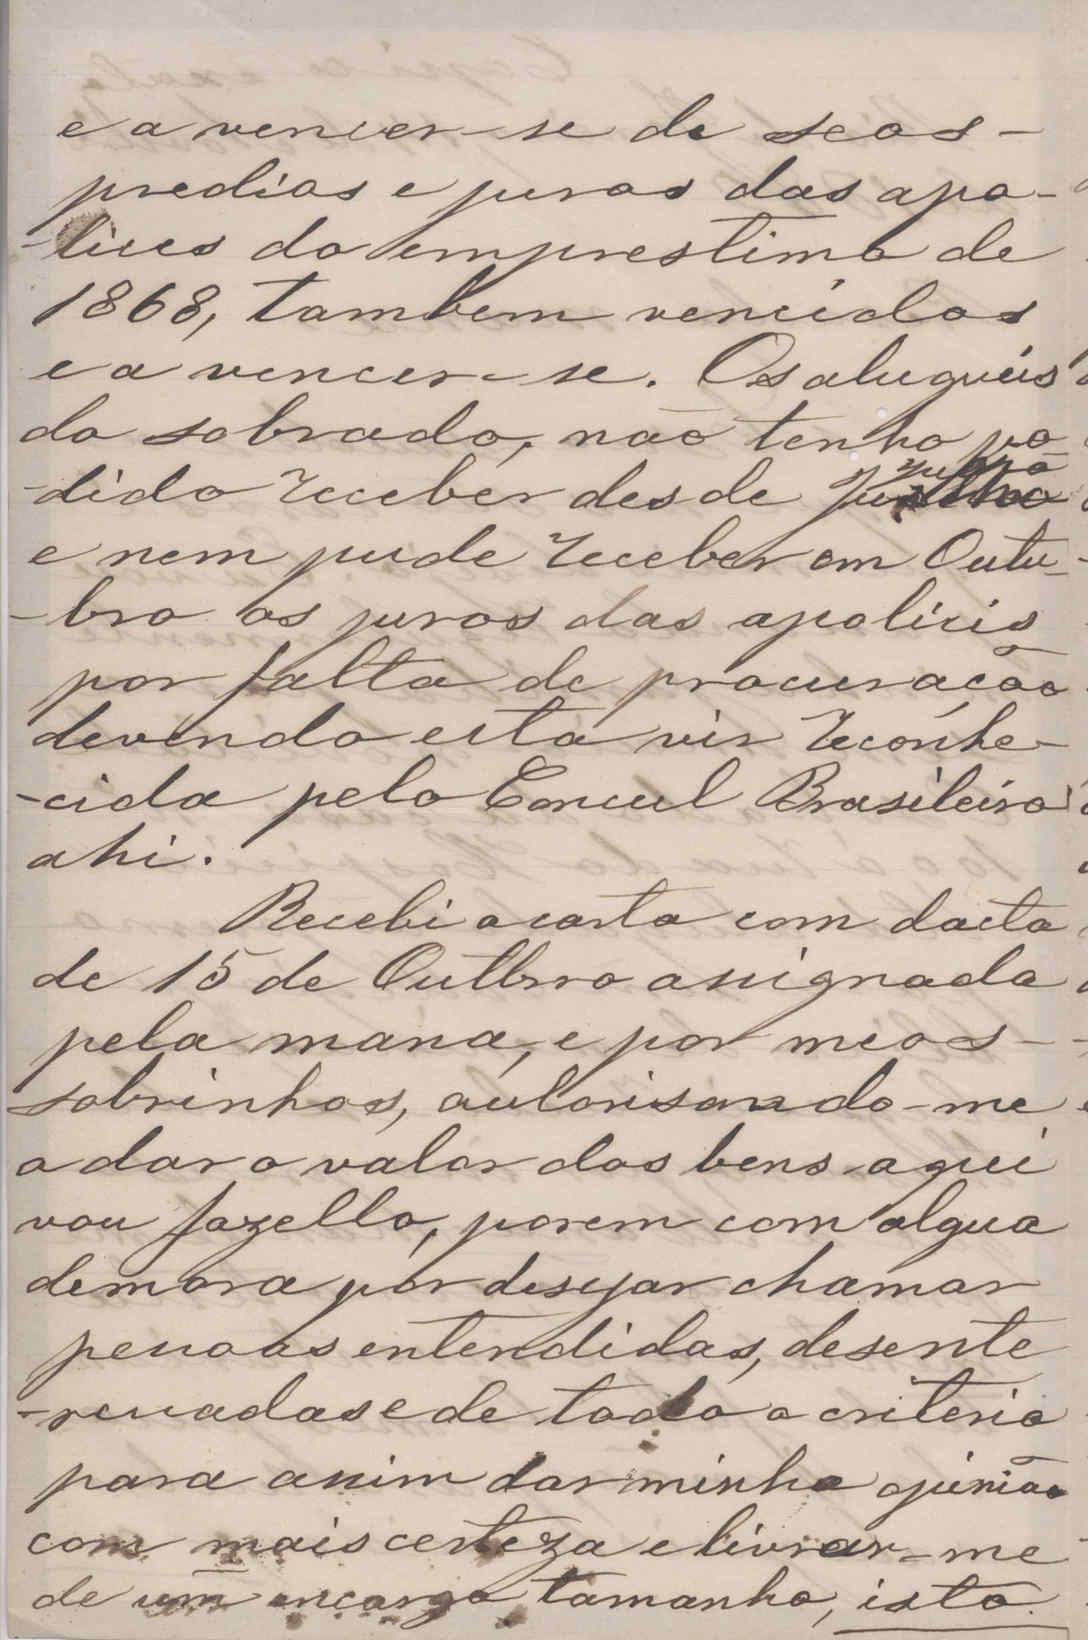 e a vencer-se de seos-
predios e juros das apo-
-lices do emprestimo de
1868, tambem vencidos
e a vencer-se. Os alugueis
do sobrado, não tenho po
-dido receber desde
e nem pude receber em Outu-
-bro os juros das apolicis
por falta de procuração
devendo esta vir reconhe-
-cida pelo Concul Brasileiro
ahi.
Recebi a carta com dacta
de 15 de Outbro assignada
pela mana, e por meos-
sobrinhos, autorisando-me
a dar o valor dos bens aqui
vou fazello, porem com algua
demora por desejar chamar
pessoas entendidas, desente
-ressadas e de todo o criterio
para assim dar minha opinião
com mais certeza e livrar-me
de um encargo tamanho, isto